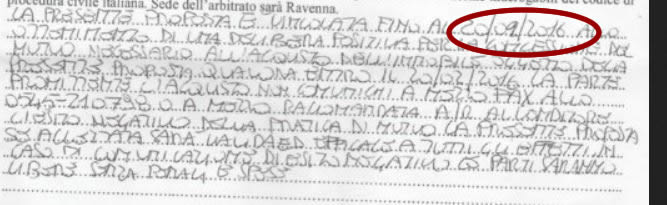 procedura civile italiana. Sede dell'arbitrato sarà Ravenna.
LA PRESENTE PROPOSTA È VINCOLATA FINO AL 20/09/2016 ALL'O
OTTENIMENTO DI UNA DELIBERA POSITIVA PER LA CONCESSIONE DEL
MUTUO NECESSARIO ALL'ACQUISTO DELL'IMMOBILE OGGETTO DELLA
PRESENTE PROPOSTA QUALORA ENTRO IL 20/02/2016 LA PARTE
PROMITTENTE L'ACQUISTO NON COMUNICHI A MEZZO FAX ALLO
0545-210798 O A MEZZO RACCOMANDATA A/R AL VENDITORE
L'ESITO NEGATIVO DELLA PRATICA DI MUTUO LA PRESENTE PROPOSTA
SE ACCETTATA SARÀ VALIDA ED EFFICACE A TUTTI GLI EFFETTI IN
CASO DI COMUNICAZIONE DI ESITO NEGATIVO LE PARTI SARANNO
LIBERE SENZA PENALI E SPESE